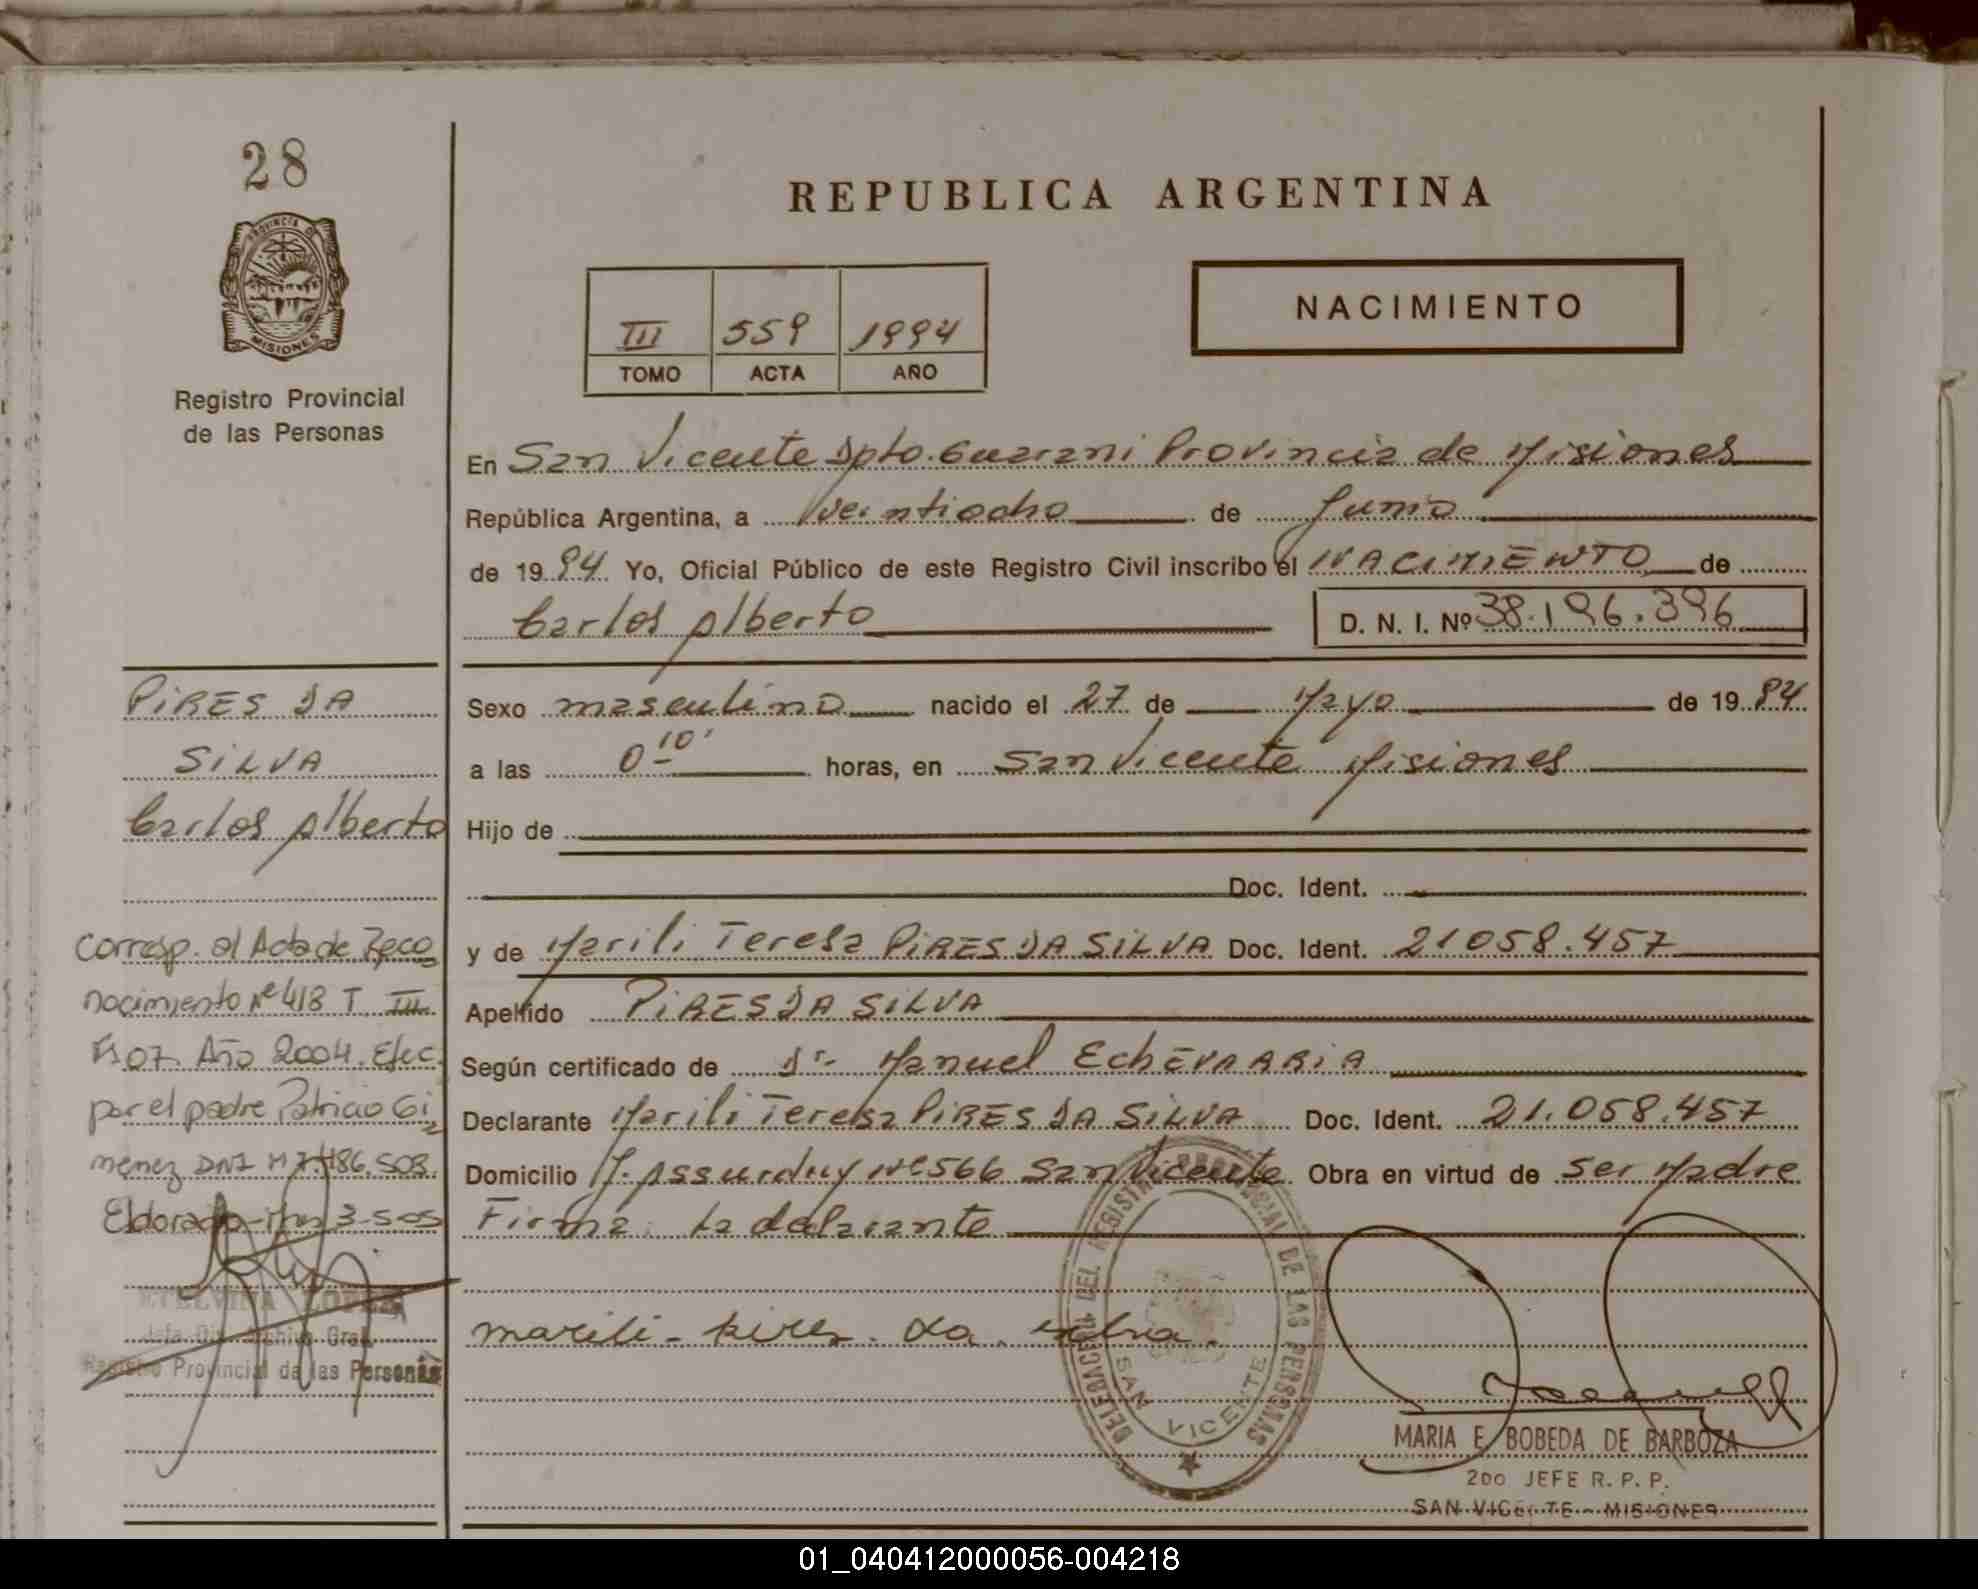 28
PROVINCIA DE
MISIONES
Registro Provincial
de las Personas
REPUBLICA ARGENTINA
III 559 1994
TOMO ACTA AÑO
NACIMIENTO
En San Vicente Dpto. Guarani Provincia de Misiones
República Argentina, a veintiocho de Junio
de 1994 Yo, Oficial Público de este Registro Civil inscribo el NACIMIENTO de
Carlos Alberto
D. N. I. Nº 38.196.396
PIRES DA
SILVA
Carlos Alberto
Sexo masculino nacido el 27 de Mayo de 1994
a las 0 10' horas, en San Vicente Misiones
Hijo de
Doc. Ident.
y de Marili Teresa PIRES DA SILVA Doc. Ident. 21058.457
Apellido PIRES DA SILVA
Según certificado de Dr. Manuel EchEVARRIA
Declarante Marili Teresa PIRES DA SILVA Doc. Ident. 21.058.457
Domicilio J. Assurduy Nº 566 San Vicente Obra en virtud de ser Madre
Firma: La declarante
Corresp. al Acta de Reco
nocimiento Nº 418 T. III
Fs 07. Año 2004. Efec.
por el padre Patricio Gi
menez DNI M 7.486.503.
Eldorado-Mnes 3-5-05
ETELVINA
Jefa Div. Archivo Gral.
Registro Provincial de las Personas
marili - pires. da. silva.
DELEGACION DEL REGISTRO PROVINCIAL DE LAS PERSONAS
SAN VICENTE
MARIA E. BOBEDA DE BARBOZA
2DO JEFE R. P. P.
SAN VICENTE - MISIONES
01_040412000056-004218